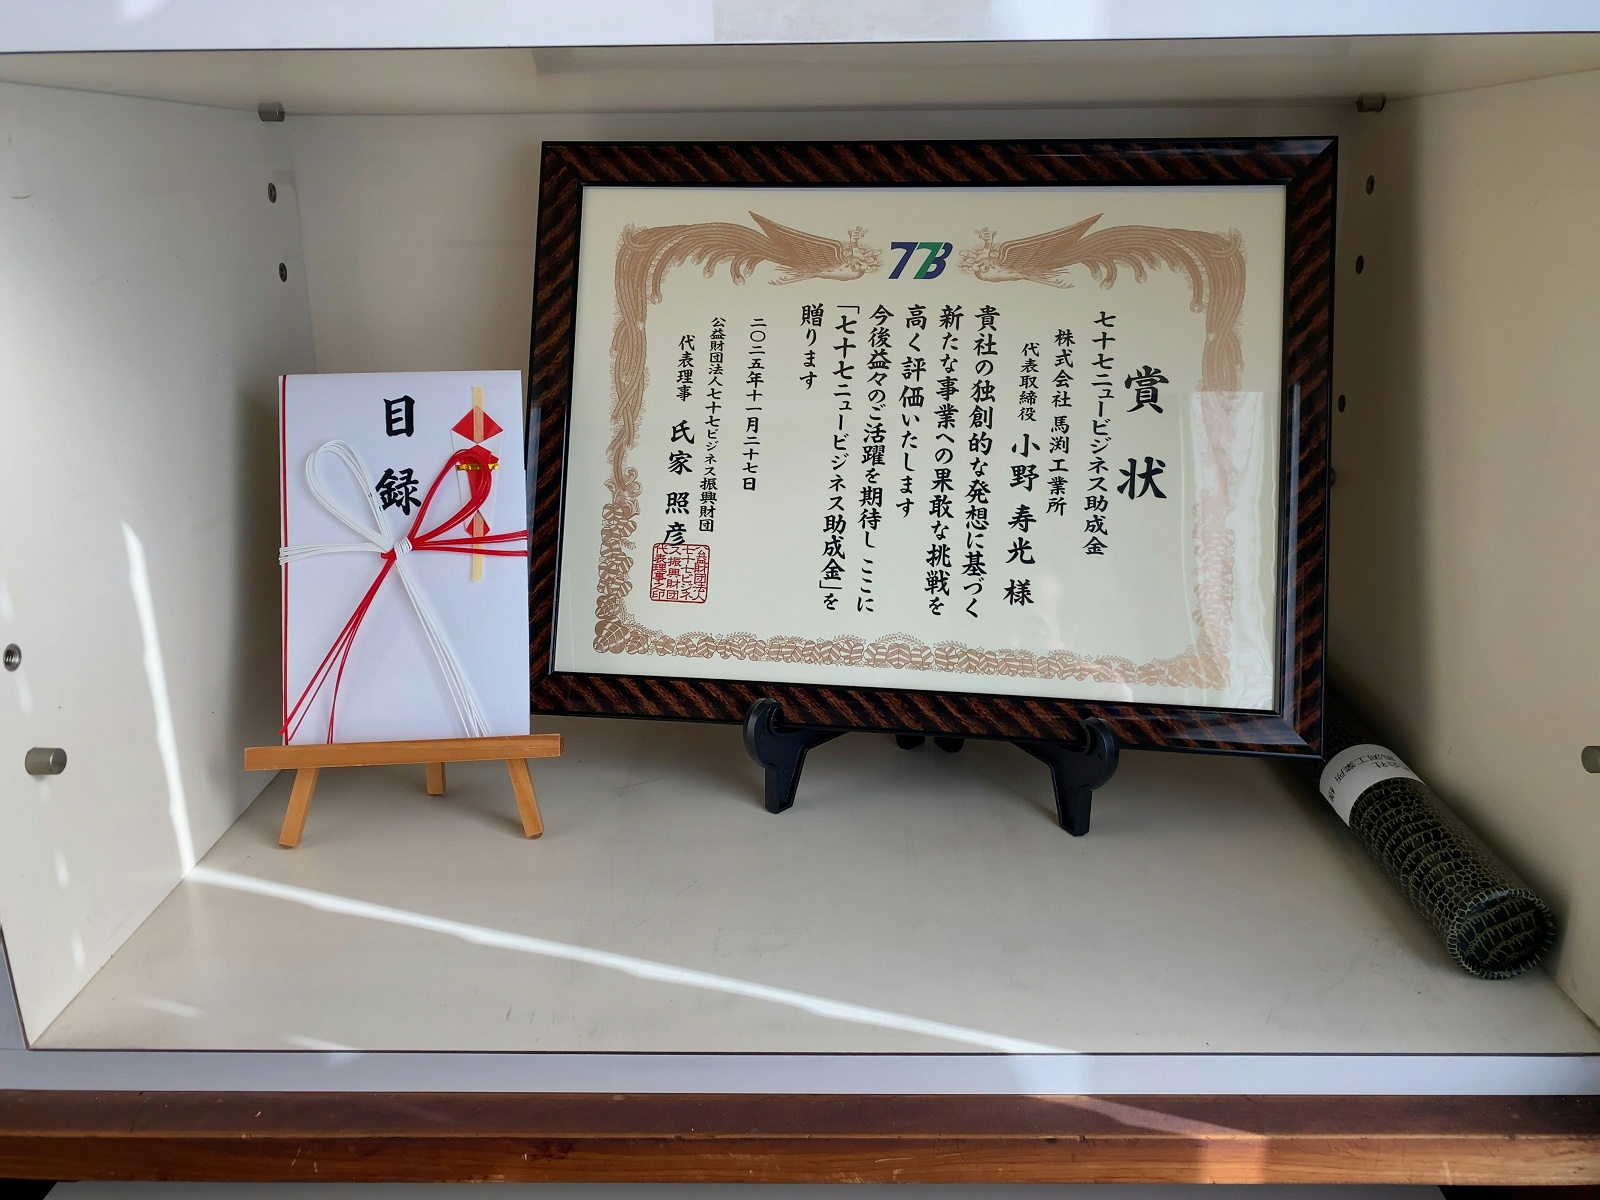 77B
賞状
七十七ニュービジネス助成金
株式会社 馬渕工業所
代表取締役 小野寿光様
貴社の独創的な発想に基づく
新たな事業への果敢な挑戦を
高く評価いたします
今後益々のご活躍を期待し ここに
「七十七ニュービジネス助成金」を
贈ります
二〇二五年十一月二十七日
公益財団法人七十七ビジネス振興財団
代表理事 氏家照彦
公益財団法人
七十七ビジネ
ス振興財団
代表理事之印
目録